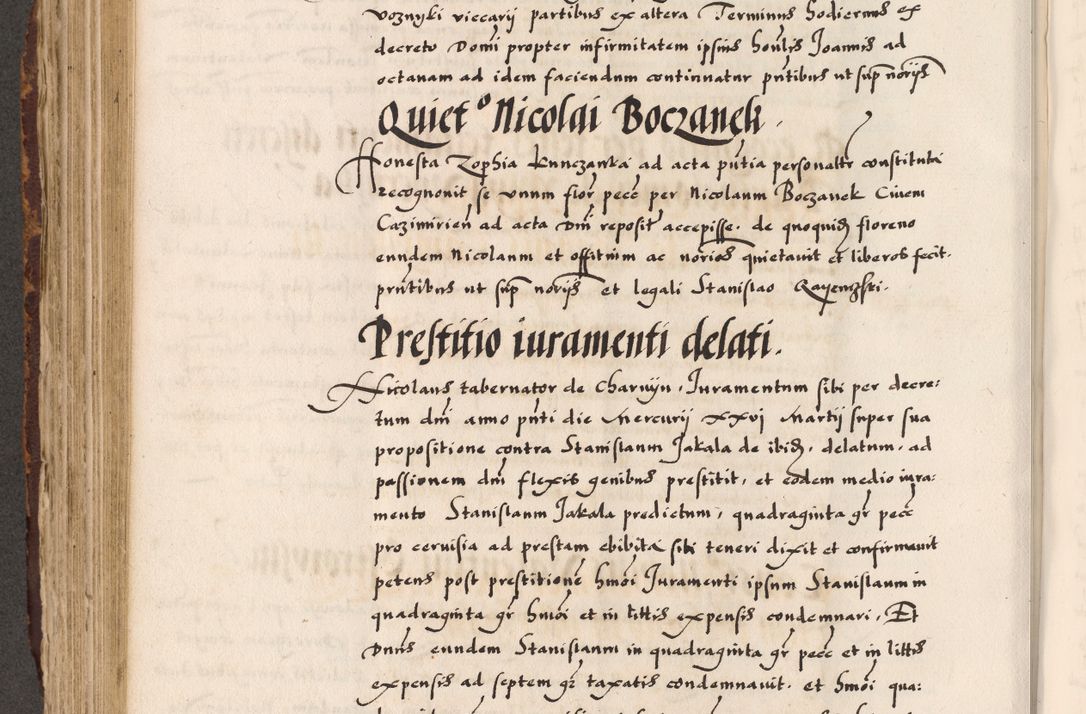 voznyki viccarij partibus ex altera Terminus hodiernus ex
decreto Domi propter infirmitatem ipsius honlis Joannis ad
octauam ad idem faciendum continuatur pntibus ut sup norijs
Quiet° Nicolai Boczanek.
Honesta Zophia Kunczanka ad acta pntia personalr constituta
recognouit se vnum flor pecc per Nicolaum Boczanek Ciuem
Cazimirien ad acta Dni reposit accepisse. de quoquid floreno
eundem Nicolaum et offitium ac norios quietauit et liberos fecit.
pntibus ut sup norijs et legali Stanislao
Prestitio iuramenti delati.
Nicolaus tabernator de Charuyn. Juramentum sibi per decre:
tum dni anno pnti die Mercurij xxvj Martij super sua
propositione contra Stanislaum Jakala de ibid. delatum, ad
passionem dni flexis genibus prestitit, et eodem medio iura:
mento Stanislaum Jakala predictum, quadraginta gr pecc
pro ceruisia ad prestam ebibita sibi teneri dixit et confirmauit
petens post prestitione hmoi Juramenti ipsum Stanislaum in
quadraginta gr hmoi et in littis expensis condemnari. Et
Dnus eundem Stanislaum in quadraginta gr pecc et in littis
expensis ad septem gr taxatis condemnauit. et hmoi qua: